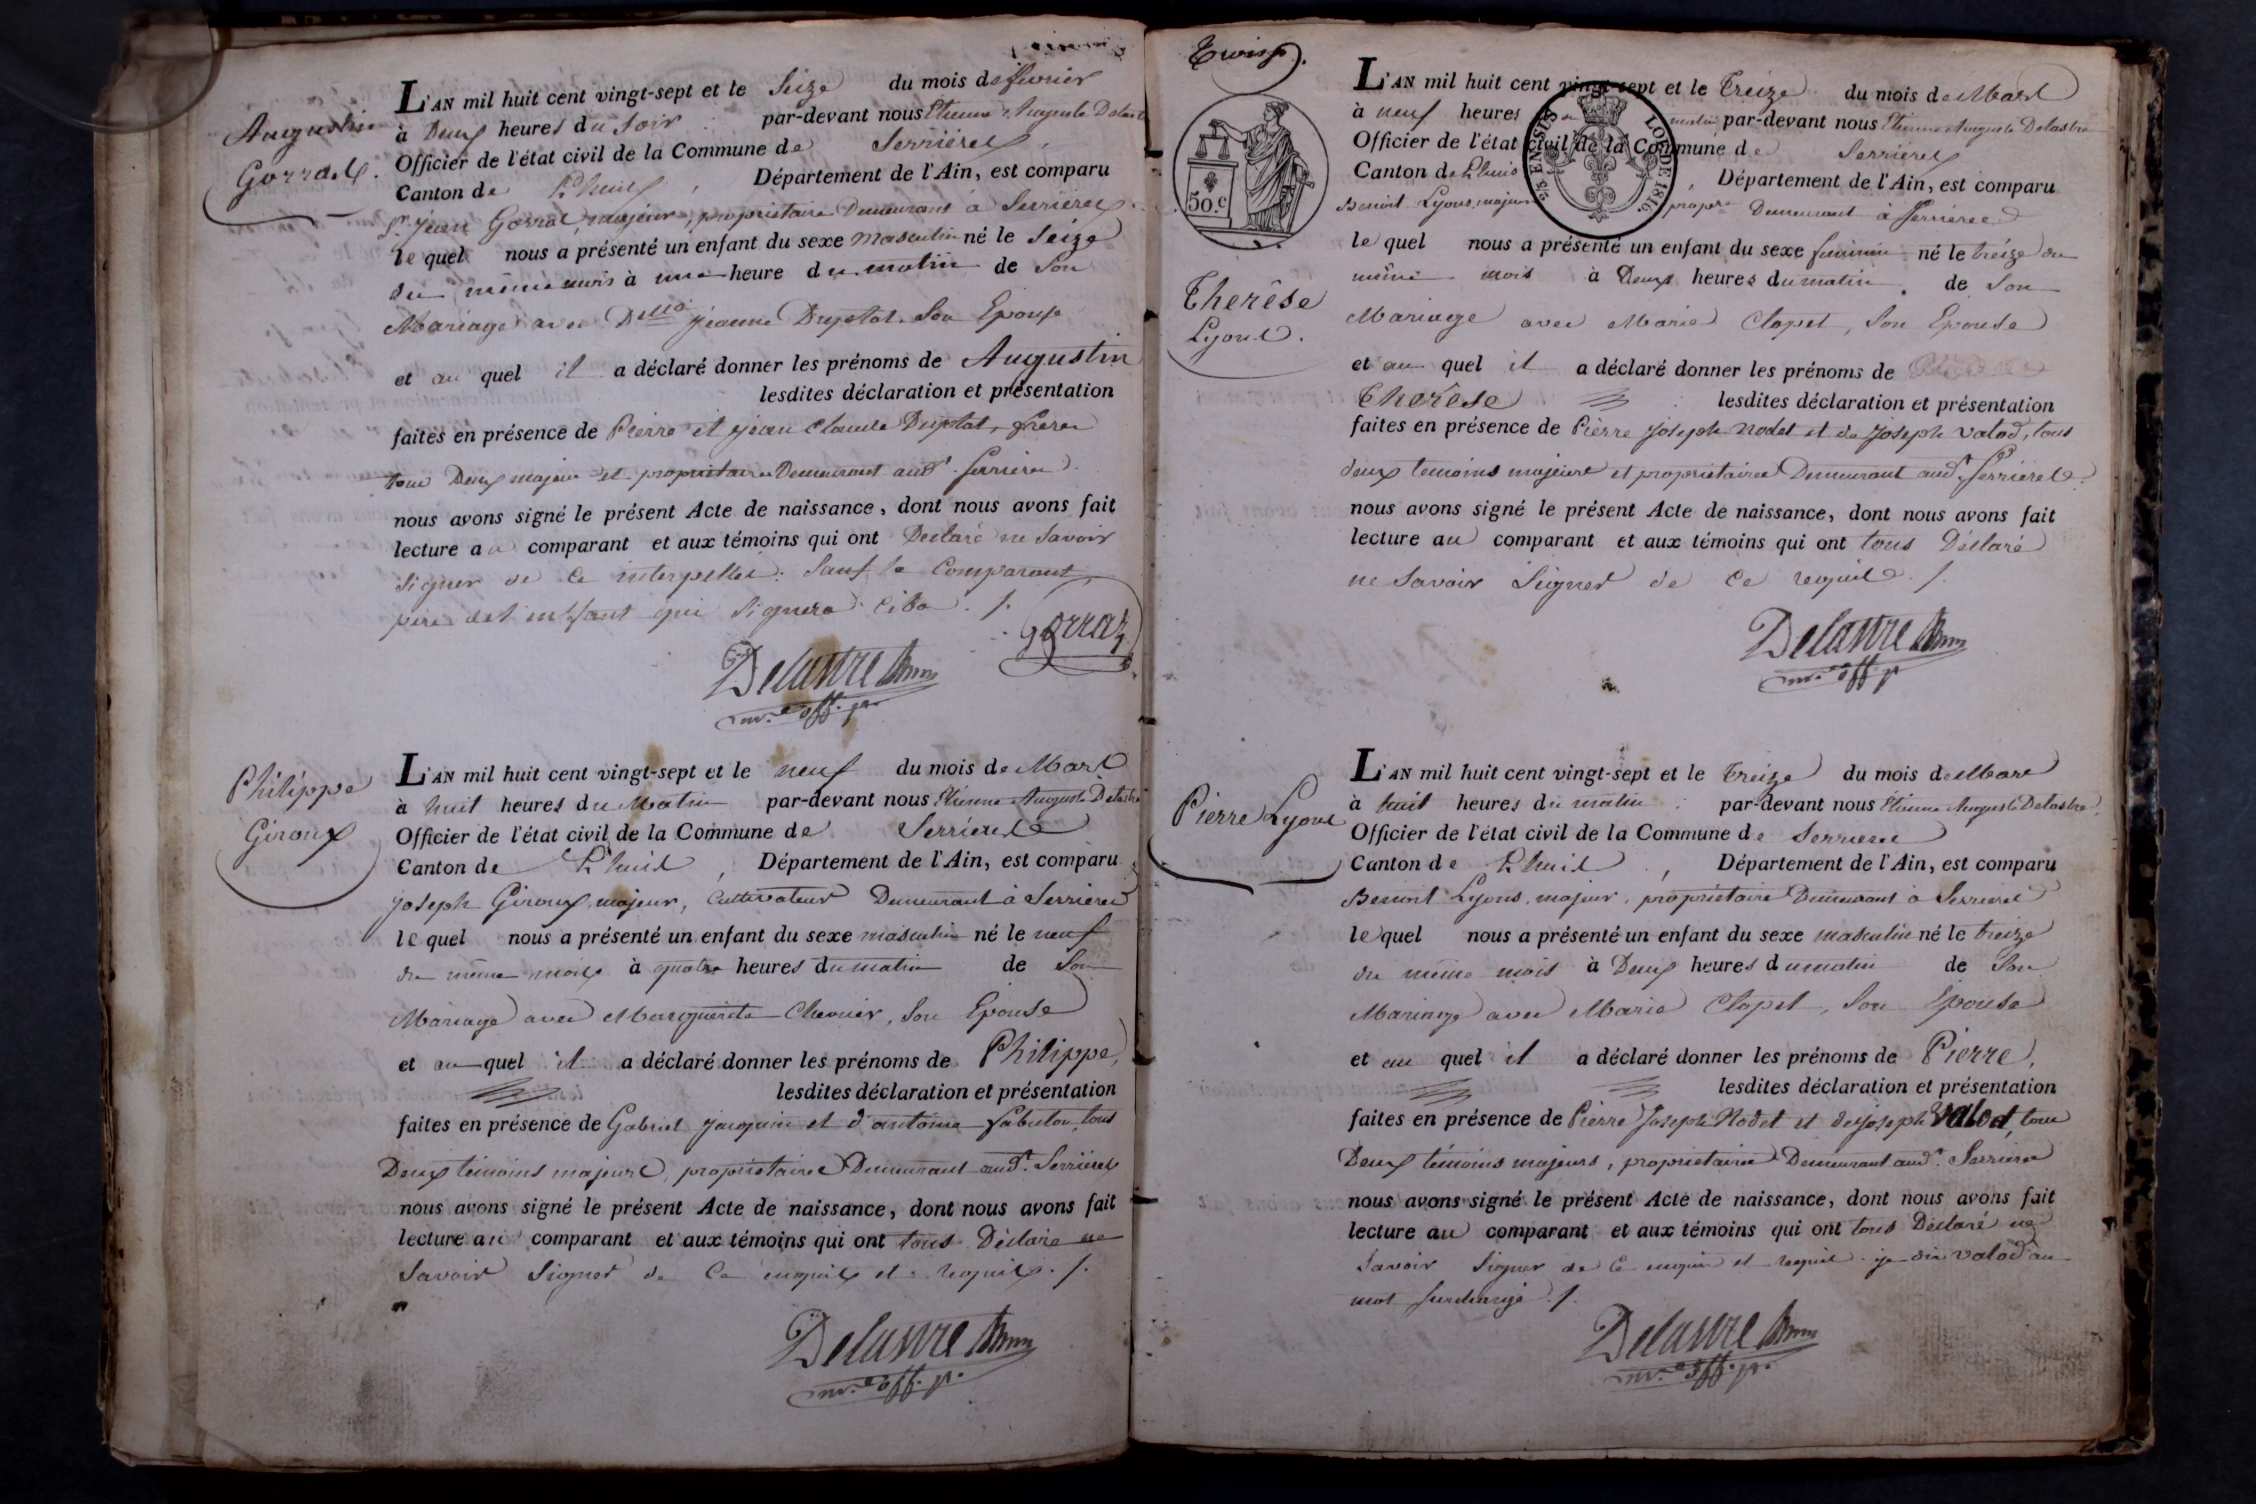 Augustin
Gorraz.
L'AN mil huit cent vingt-sept et le Seize du mois de fevrier
à Deux heures du Soir par-devant nous Etienne Auguste Delastre
Officier de l'état civil de la Commune de Serrières,
Canton de L'huis, Département de l'Ain, est comparu
Sr. Jean Gorraz, majeur, propriétaire Demeurant à Serrières
lequel nous a présenté un enfant du sexe masculin né le Seize
du même mois à une heure du matin de Son
Mariage avec Delle Jeanne Duplat Son Epouse
et au quel il a déclaré donner les prénoms de Augustin
lesdites déclaration et présentation
faites en présence de Pierre et jean Claude Duplat, frères
tous Deux majeurs et propriétaires Demeurant audt. Serrières
nous avons signé le présent Acte de naissance, dont nous avons fait
lecture au comparant et aux témoins qui ont Déclaré ne Savoir
Signer de ce interpellés. Sauf le Comparant,
père de l'enfant qui Signera
gorraz
Delastre
Philippe
Giroux
L'AN mil huit cent vingt-sept et le neuf du mois de Mars
à huit heures du Matin par-devant nous Etienne Auguste Delastre
Officier de l'état civil de la Commune de Serrières
Canton de L'huis, Département de l'Ain, est comparu
Joseph Giroux, majeur, Cultivateur Demeurant à Serrières
lequel nous a présenté un enfant du sexe masculin né le neuf
du même mois à quatre heures du matin de Son
Mariage avec Marguerite Chevier, Son Epouse
et au quel il a déclaré donner les prénoms de Philippe,
lesdites déclaration et présentation
faites en présence de Gabriel Jacquin et d'antoine tous
Deux témoins majeurs, propriétaires Demeurant audt. Serrières
nous avons signé le présent Acte de naissance, dont nous avons fait
lecture au comparant et aux témoins qui ont tous Déclaré ne
Savoir Signer de Ce enquis et requis./.
Delastre
Trois.
50.C
Therèse
Lyons.
L'AN mil huit cent vingt-sept et le Treize du mois de Mars
à neuf heures du matin par-devant nous Etienne Auguste Delastre
Officier de l'état civil de la Commune de Serrières
Canton de L'huis, Département de l'Ain, est comparu
Benoit Lyons, majeur propre Demeurant à Serrières
lequel nous a présenté un enfant du sexe feminin né le treize du
même mois à Deux heures du matin de Son
Mariage avec Marie Clapet, Son Epouse
et au quel il a déclaré donner les prénoms de
Therèse lesdites déclaration et présentation
faites en présence de Pierre Joseph Nodet et de Joseph valod, tous
deux temoins majeurs et propriétaires Demeurant audt. Serrières
nous avons signé le présent Acte de naissance, dont nous avons fait
lecture au comparant et aux témoins qui ont tous Déclaré
ne Savoir Signer de Ce requis./.
Delastre
Pierre Lyons
L'AN mil huit cent vingt-sept et le Treize du mois de Mars
à huit heures du matin par-devant nous Etienne Auguste Delastre
Officier de l'état civil de la Commune de Serrières
Canton de L'huis, Département de l'Ain, est comparu
Benoit Lyons, majeur, propriétaire Demeurant à Serrières
lequel nous a présenté un enfant du sexe masculin né le treize
du même mois à Deux heures du matin de Son
Mariage avec Marie Clapet, Son Epouse
et au quel il a déclaré donner les prénoms de Pierre,
lesdites déclaration et présentation
faites en présence de Pierre Joseph Nodet et de Joseph valod, tous
Deux témoins majeurs, propriétaires Demeurant audt. Serrières
nous avons signé le présent Acte de naissance, dont nous avons fait
lecture au comparant et aux témoins qui ont tous Déclaré ne
Savoir Signer de Ce enquis et requis je dis valod au
mot surchargé./.
Delastre